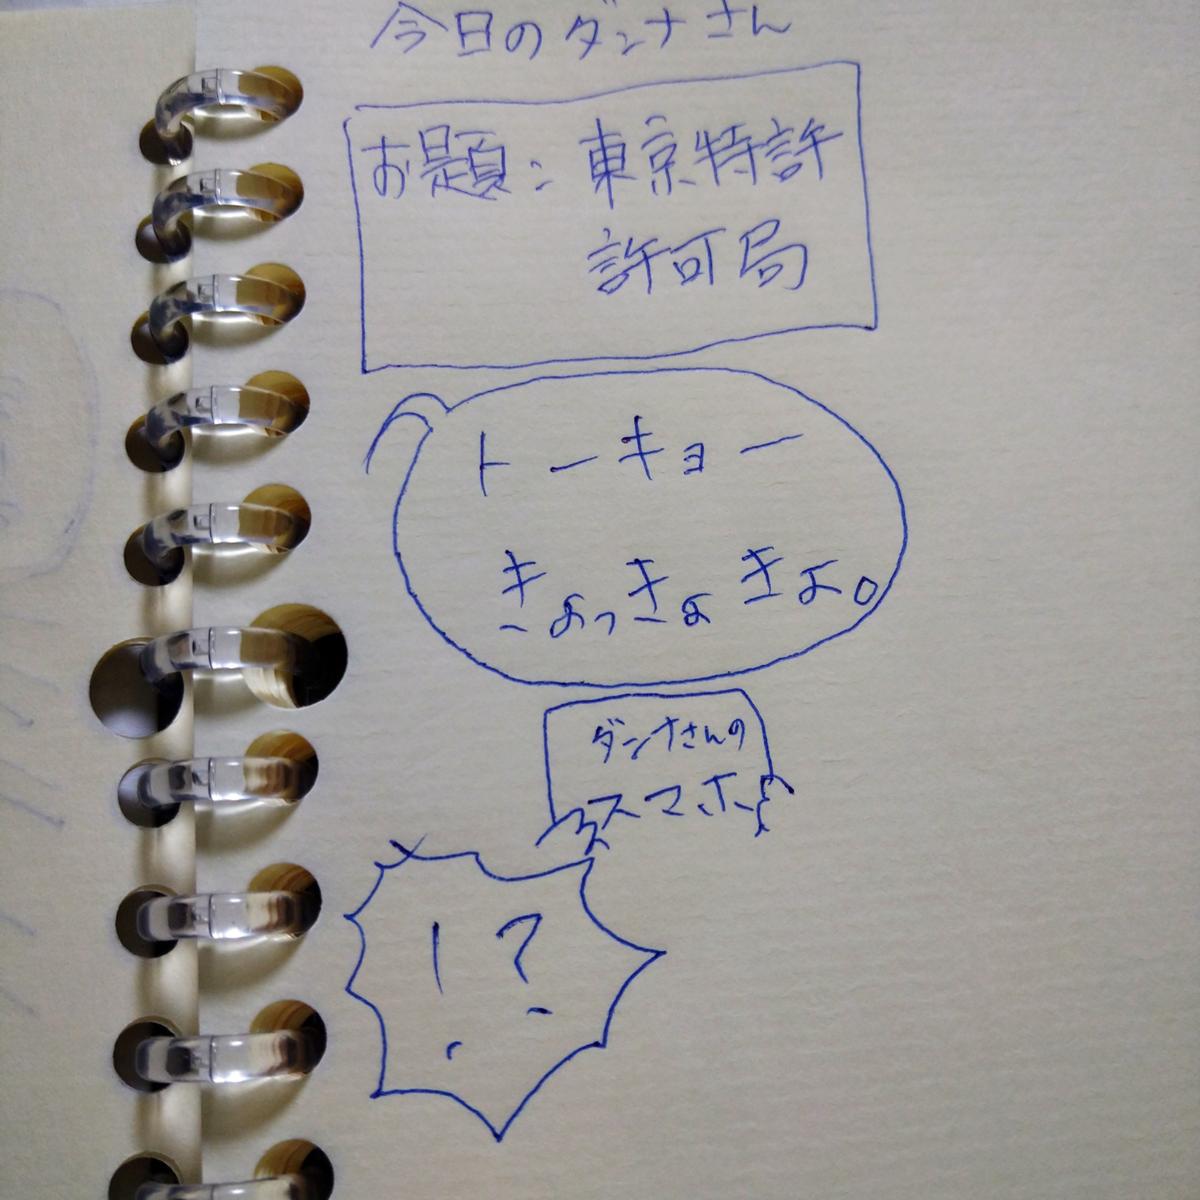 今日のダンナさん
お題:東京特許
許可局
トーキョー
きょっきょきょ。
ダンナさんの
スマホ
!?